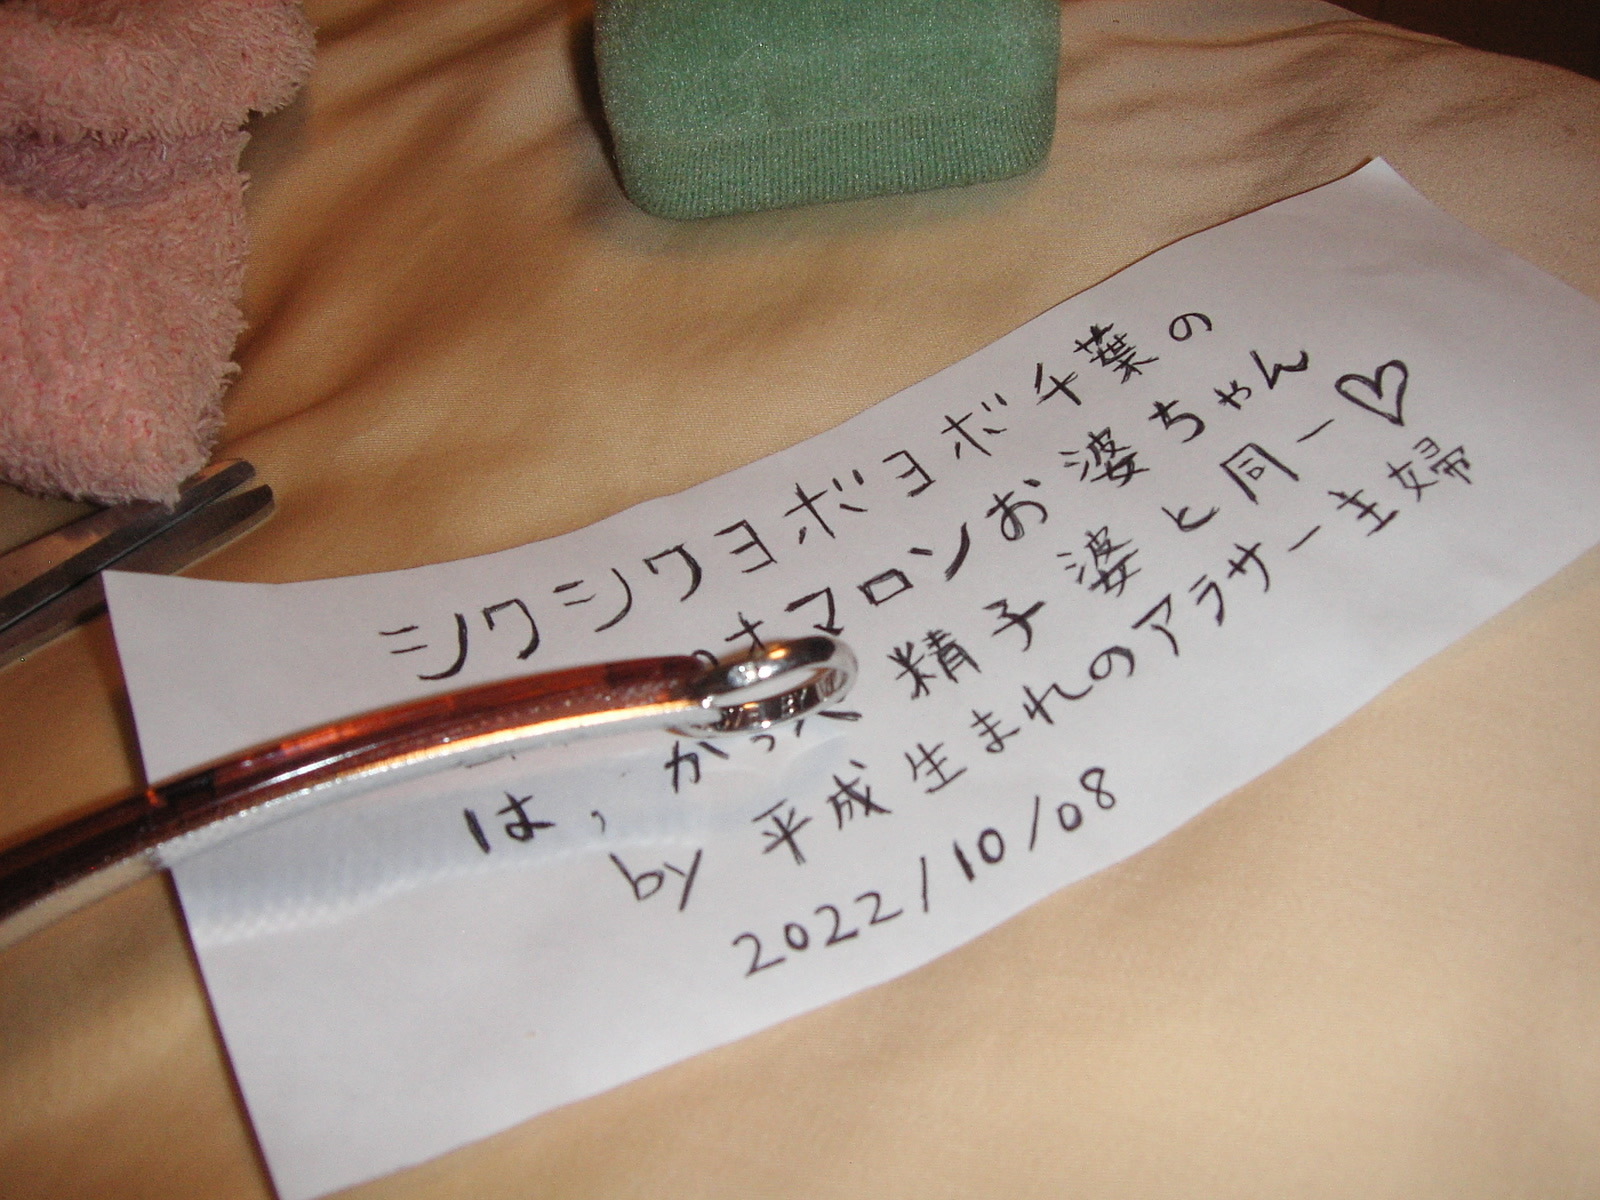 シワシワヨボヨボ千葉の
オマロンお婆ちゃん
は、かっ 精子婆と同一♡
by 平成生まれのアラサー主婦
2022/10/08